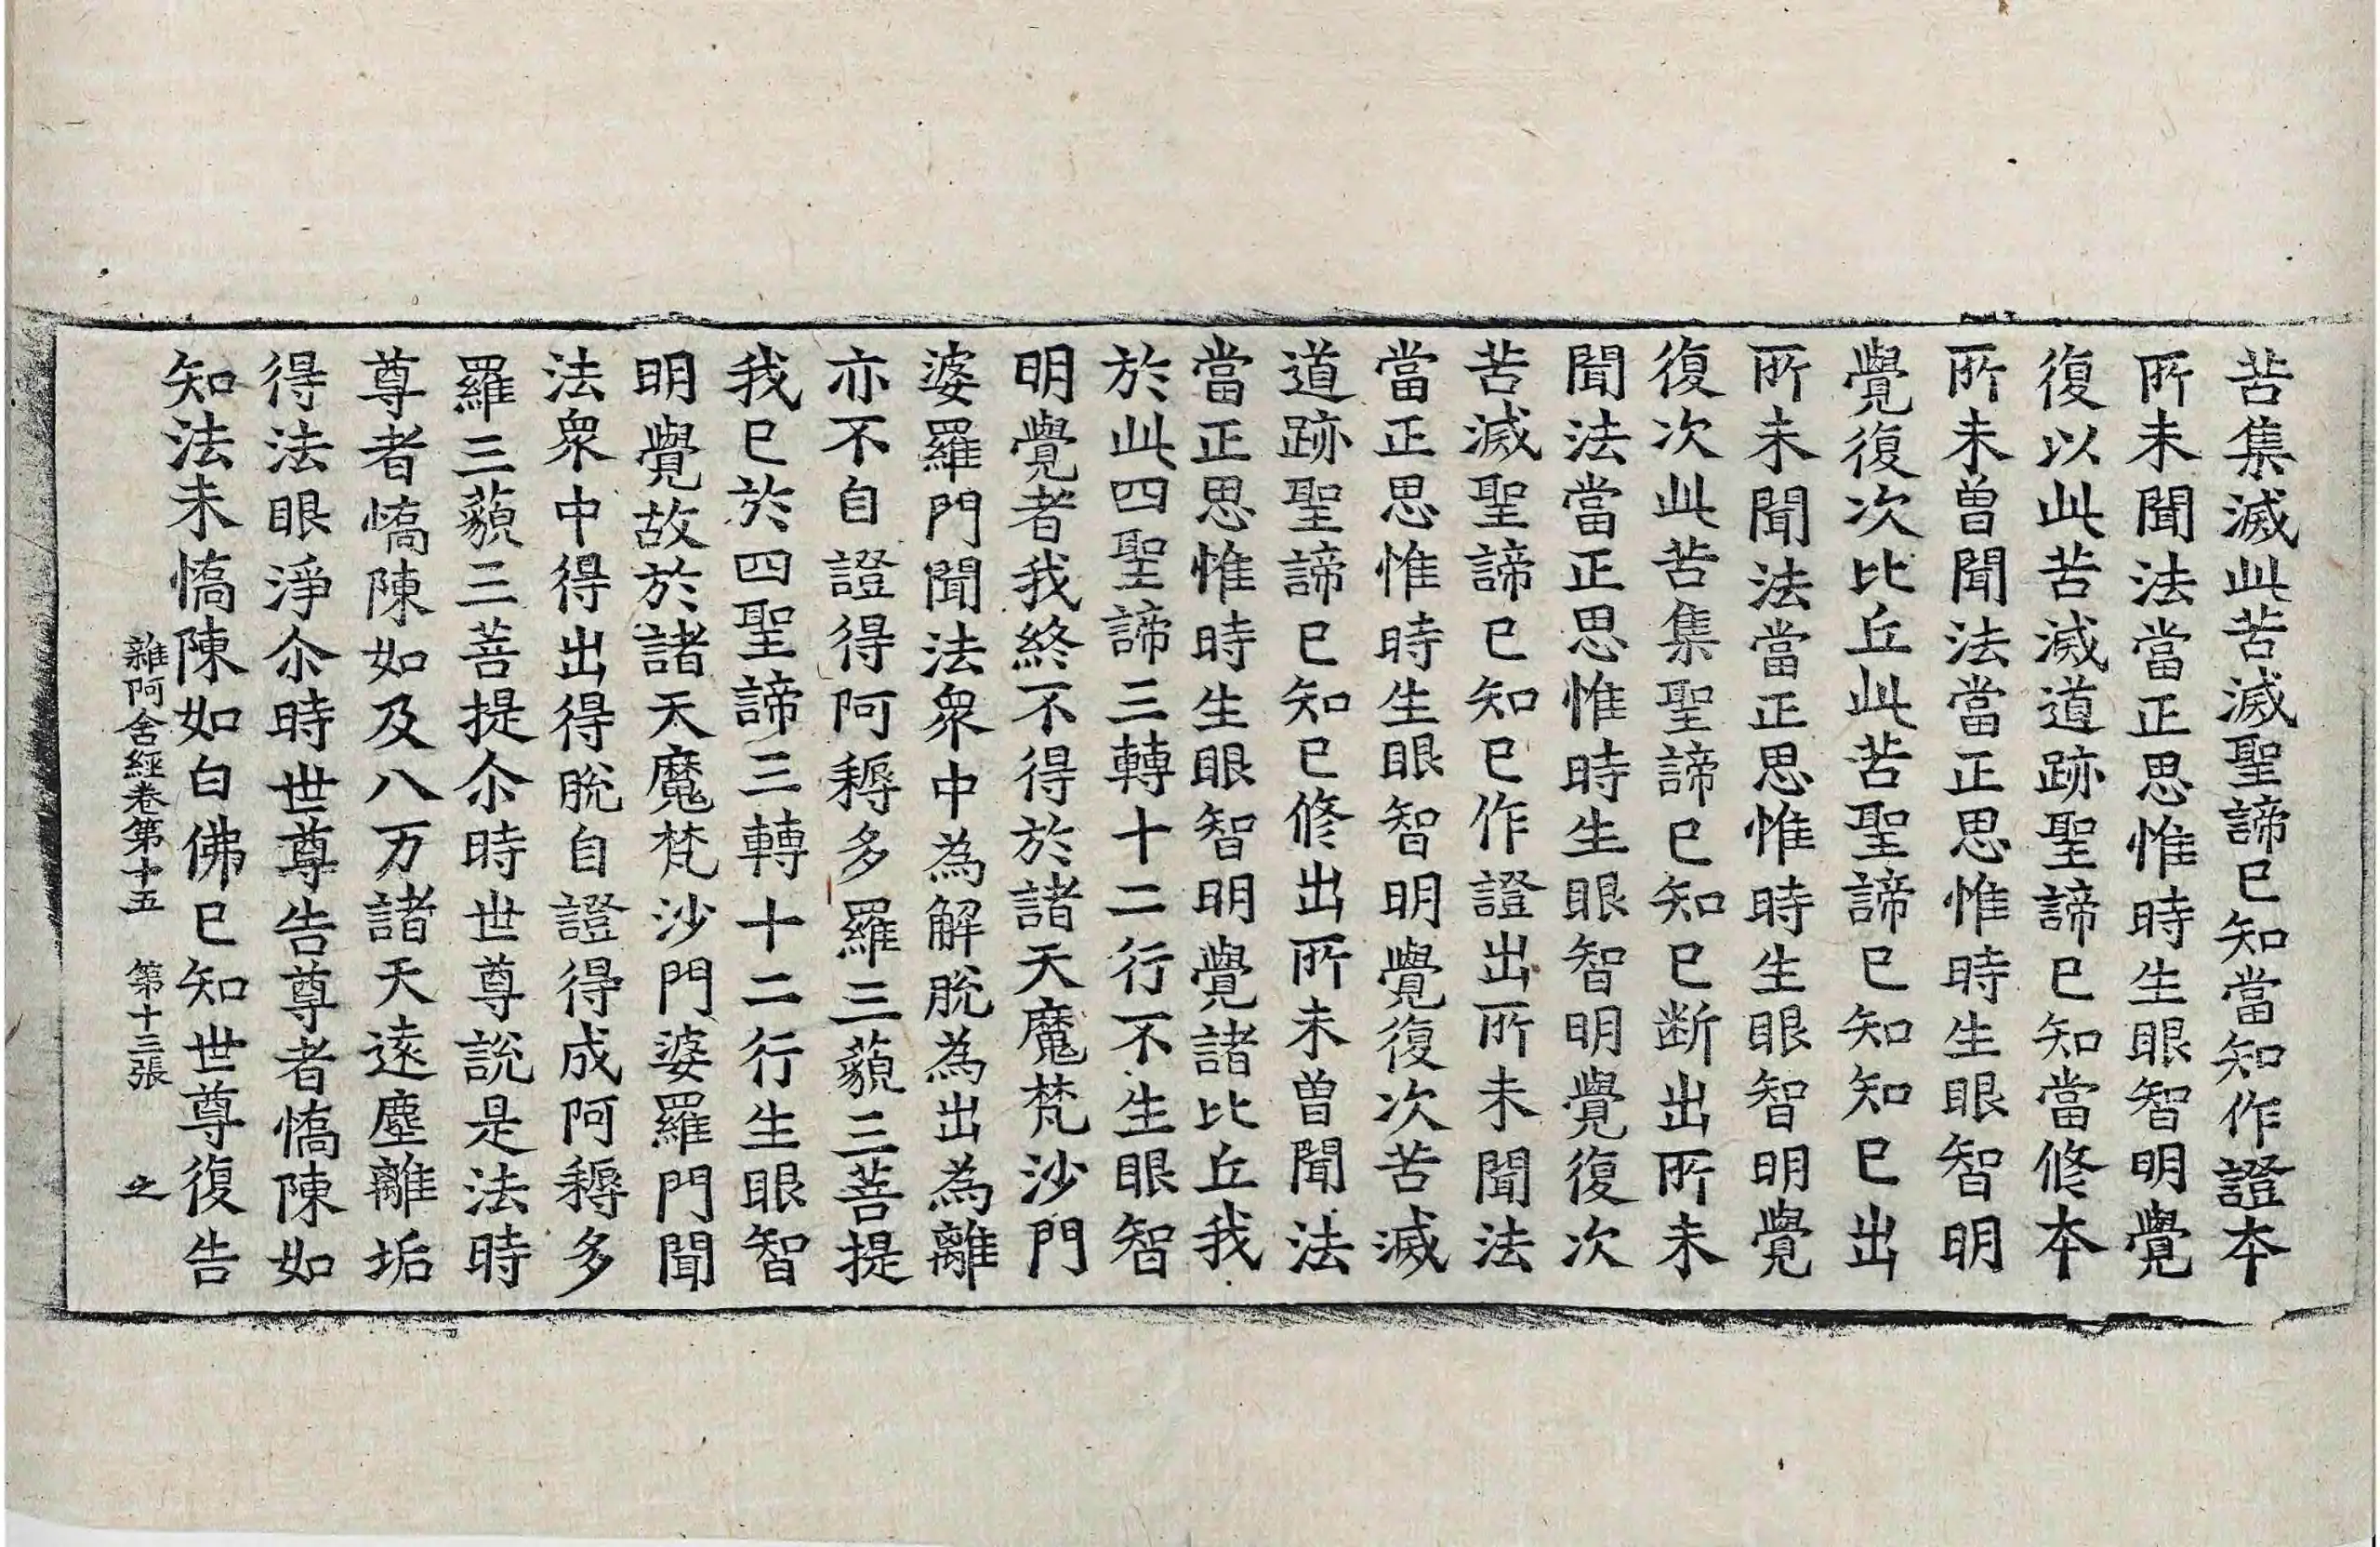 苦集滅此苦滅聖諦已知當知作證本
所未聞法當正思惟時生眼智明覺
復以此苦滅道跡聖諦已知當修本
所未曾聞法當正思惟時生眼智明
覺復次比丘此苦聖諦已知知已出
所未聞法當正思惟時生眼智明覺
復次此苦集聖諦已知已断出所未
聞法當正思惟時生眼智明覺復次
苦滅聖諦已知已作證出所未聞法
當正思惟時生眼智明覺復次苦滅
道跡聖諦已知已修出所未曾聞法
當正思惟時生眼智明覺諸比丘我
於此四聖諦三轉十二行不生眼智
明覺者我終不得於諸天魔梵沙門
婆羅門聞法衆中為解脫為出為離
亦不自證得阿耨多羅三藐三菩提
我已於四聖諦三轉十二行生眼智
明覺故於諸天魔梵沙門婆羅門聞
法衆中得出得脫自證得成阿耨多
羅三藐三菩提尒時世尊說是法時
尊者憍陳如及八万諸天遠塵離垢
得法眼淨尒時世尊告尊者憍陳如
知法未憍陳如白佛已知世尊復告
雜阿含經卷第十五 第十三張 之